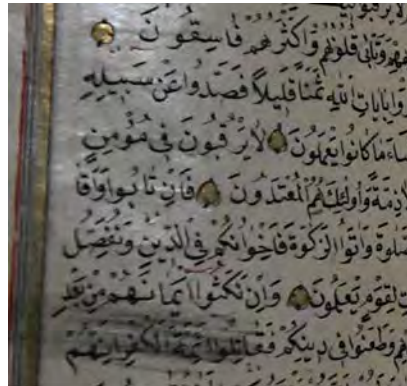 لا يرقبوا
وَتَأْبٰى قُلُوبُهُمْ وَاَكْثَرُهُمْ فَاسِقُونَ
وْا بِاٰيَاتِ اللّٰهِ ثَمَنًا قَلِيلًا فَصَدُّوا عَنْ سَبِيلِهِ
سَاءَ مَا كَانُوا يَعْمَلُونَ لَا يَرْقُبُونَ فِى مُؤْمِنٍ
لَا ذِمَّةً وَاُولٰئِكَ هُمُ الْمُعْتَدُونَ فَاِنْ تَابُوا وَاَقَا
صَّلٰوةَ وَاٰتَوُا الزَّكٰوةَ فَاِخْوَانُكُمْ فِى الدِّينِ وَنُفَصِّلُ
تِ لِقَوْمٍ يَعْلَمُونَ وَاِنْ نَكَثُوا اَيْمَانَهُمْ مِنْ بَعْدِ
هِمْ وَطَعَنُوا فِى دِينِكُمْ فَقَاتِلُوا اَئِمَّةَ الْكُفْرِ اِنَّهُمْ